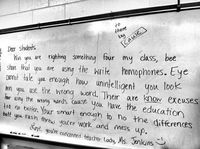 Dear students,
Win you are righting something four my class, bee
shore that you are using the write homophones. Eye
cannot tale you enough how unintelligent you look
win you use the wrong word. Their are know excuses
for using the wrong words cause you have the education
too no better. Your smart enough to no the differences
butt you rush threw you're work and mess up.
Sincerely, you're concerned teacher lady, Ms. Jenkins